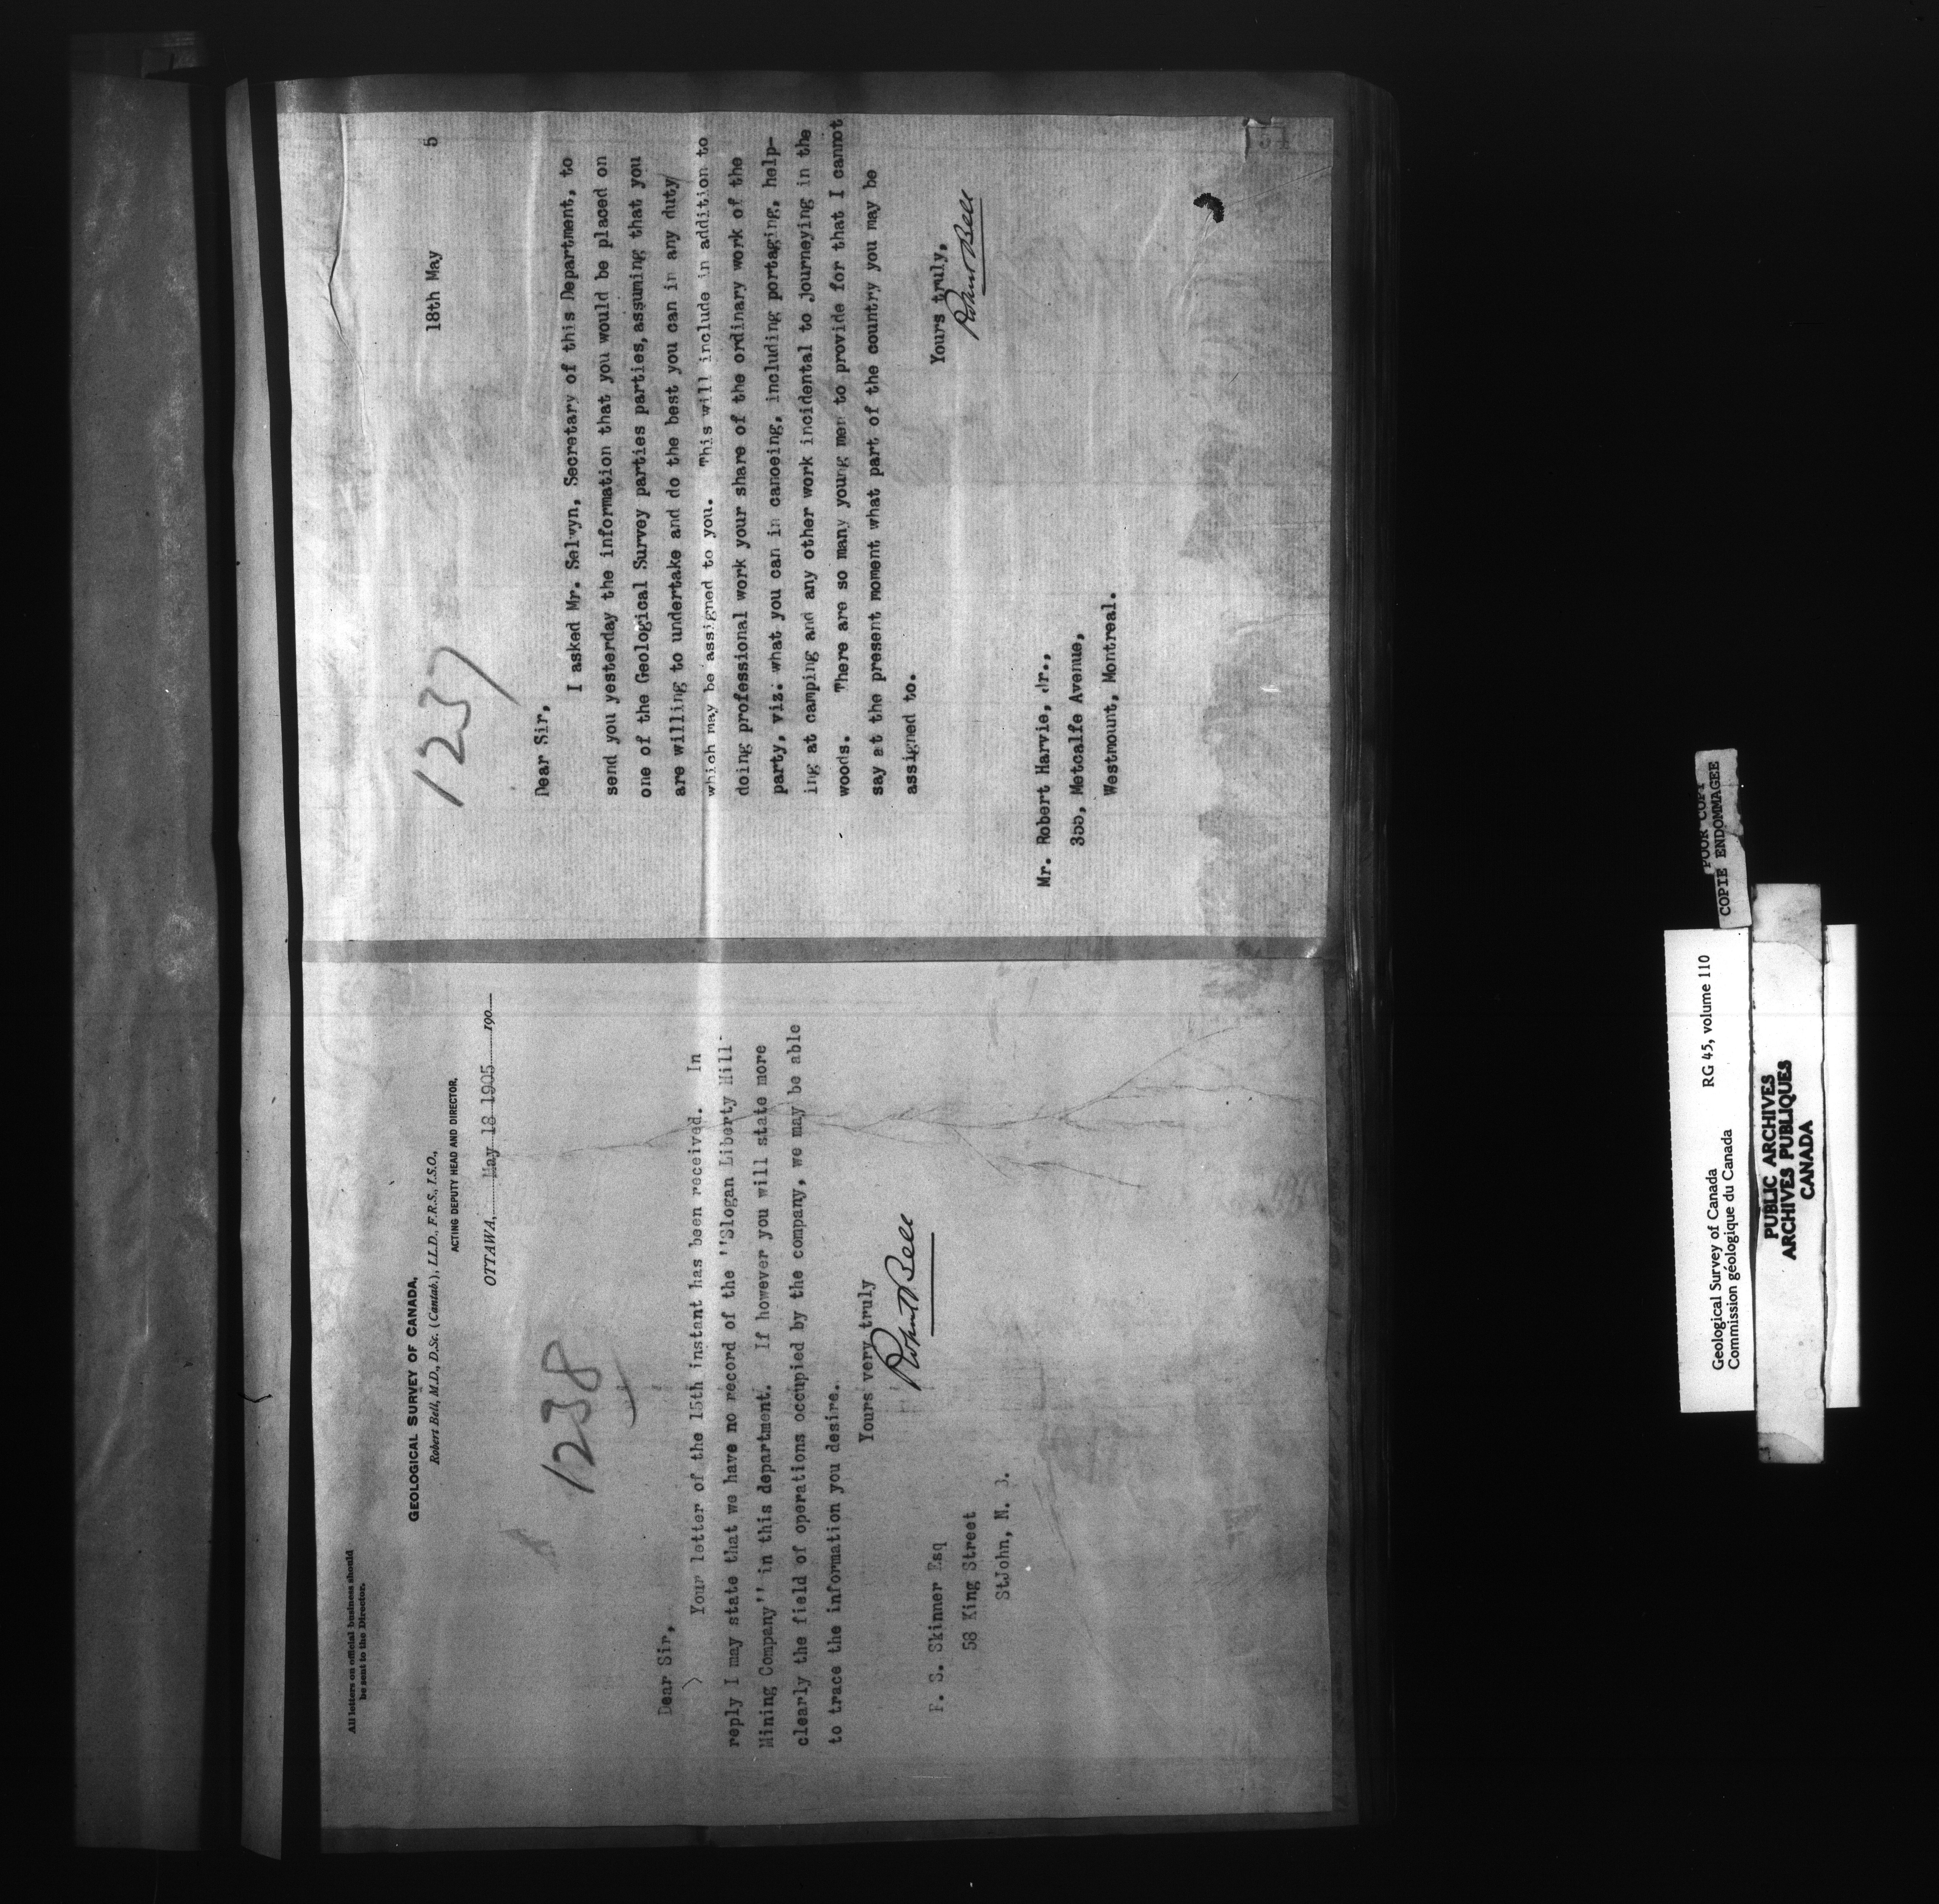 All letters on official business should
be sent to the Director.
GEOLOGICAL SURVEY OF CANADA,
Robert Bell, M.D., D.Sc. (Cantab.), LL.D., F.R.S., I.S.O.,
ACTING DEPUTY HEAD AND DIRECTOR.
OTTAWA, May 18 1905 190
1238
Dear Sir,
Your letter of the 15th instant has been received. In
reply I may state that we have no record of the ''Slogan Liberty Hill-
Mining Company'' in this department. If however you will state more
clearly the field of operations occupied by the company, we may be able
to trace the information you desire.
Yours very truly
Robert Bell
F. S. Skinner Esq
58 King Street
StJohn, N.
1237
18th May 5
Dear Sir,
I asked Mr. Selwyn, Secretary of this Department, to
send you yesterday the information that you would be placed on
one of the Geological Survey parties parties, assuming that you
are willing to undertake and do the best you can in any duty
which may be assigned to you. This will include in addition to
doing professional work your share of the ordinary work of the
party, viz: what you can in canoeing, including portaging, help-
ing at camping and any other work incidental to journeying in the
woods. There are so many young men to provide for that I cannot
say at the present moment what part of the country you may be
assigned to.
Yours truly,
Robert Bell
Mr. Robert Harvie, Jr.,
355, Metcalfe Avenue,
Westmount, Montreal.
POOR COPY
COPIE ENDOMMAGEE
Geological Survey of Canada RG 45, volume 110
Commission géologique du Canada
PUBLIC ARCHIVES
ARCHIVES PUBLIQUES
CANADA